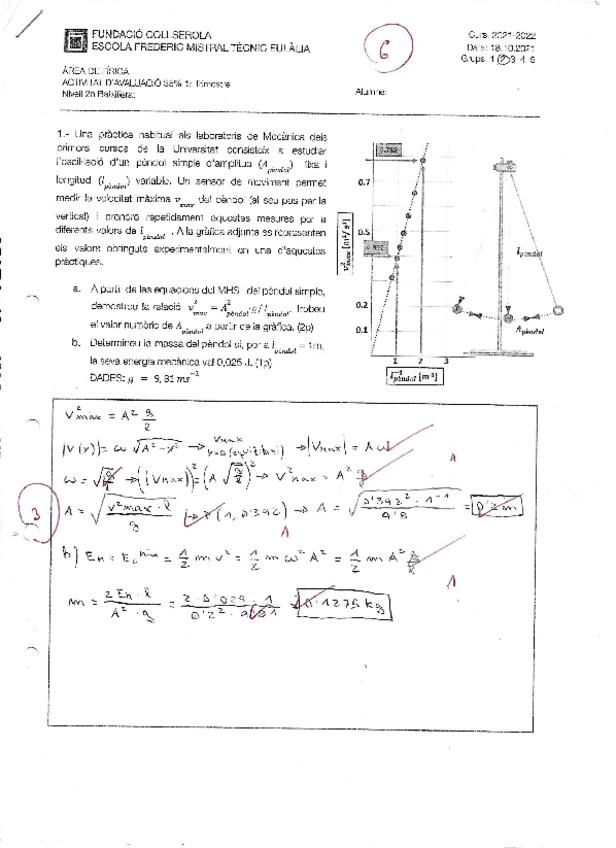 FUNDACIÓ COLLSEROLA
ESCOLA FREDERIC MISTRAL TÈCNIC EULÀLIA
Curs: 2021-2022
Data: 18.10.2021
Grups: 1 2 3 4 5
6
ÀREA DE FÍSICA
ACTIVITAT D'AVALUACIÓ 35% 1r Trimestre
Nivell 2n Batxillerat
Alumne:
1.- Una pràctica habitual als laboratoris de Mecànica dels
primers cursos de la Universitat consisteix a estudiar
l'oscil·lació d'un pèndol simple d'amplitud (A pèndol) fixa i
longitud (l pèndol) variable. Un sensor de moviment permet
medir la velocitat màxima v max del pèndol (al seu pas per la
vertical) i prendre repetidament aquestes mesures per a
diferents valors de l pèndol . A la gràfica adjunta es representen
els valors obtinguts experimentalment en una d'aquestes
pràctiques.
a. A partir de las equacions del MHS del pèndol simple,
demostreu la relació v²max = A²pèndol · g / l pèndol. Trobeu
el valor numèric de A pèndol a partir de la gràfica. (2p)
b. Determineu la massa del pèndol si, per a l pèndol = 1m,
la seva energia mecànica val 0,025 J. (1p)
DADES: g = 9,81 ms⁻²
0.7
0.5
0.2
0.1
v²max [m²/s²]
1 2 3
l⁻¹pèndol [m⁻¹]
l pèndol
A pèndol
V²max = A² g/l
|V(x)| = ω √(A²-x²) → Vmax x=0 (equilibri) → |Vmax| = A ω
ω = √(g/l) → (|Vmax|)² = (A √(g/l))² → V²max = A² g/l
1
A = √(V²max · l / g) → P(1, 0'392) → A = √(0'392 · 1⁻¹ / 9'8) = 0'2 m
3
1
b) Em = Ec max = 1/2 m v² = 1/2 m ω² A² = 1/2 m A² g/l
1
m = 2 Em · l / A² · g = 2 · 0'025 · 1 / 0'2² · 9'81 = 0'1275 kg